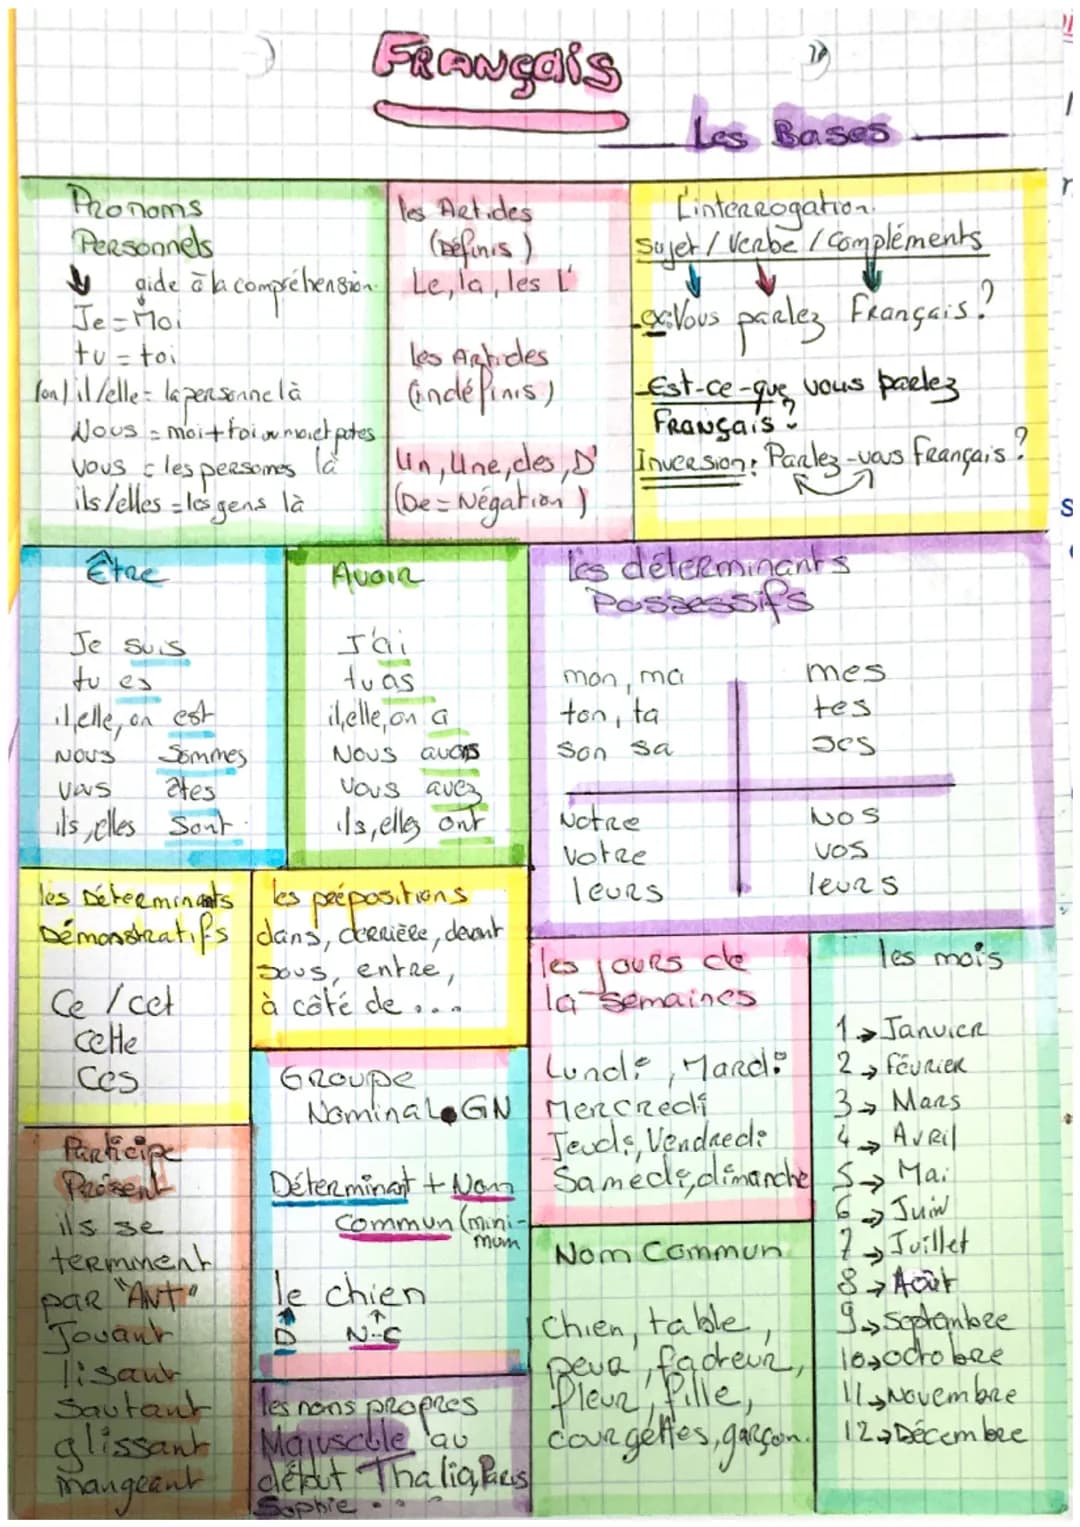 Français
Les Bases
Pronoms
Personnels
aide à la compréhension
Je = Moi
tu = toi
(on) il/elle = la personne là
Nous = moi + toi ou moi et potes
vous = les personnes là
ils/elles = les gens là
les Articles
(Définis)
Le, la, les L'
les Articles
(indéfinis)
Un, Une, des, D'
(De = Négation)
L'interrogation
Sujet / Verbe / Compléments
ex: Vous parlez Français?
- Est-ce-que vous parlez
Français?
Inversion: Parlez-vous Français?
Être
Je suis
tu es
il, elle, on est
Nous Sommes
vous êtes
ils, elles Sont
Avoir
J'ai
tu as
il, elle, on a
Nous avons
Vous avez
ils, elles ont
les déterminants
Possessifs
mon, ma mes
ton, ta tes
son sa ses
Notre Nos
Votre vos
leurs leurs
les Déterminants
Démonstratifs
Ce / cet
cette
Ces
les prépositions
dans, derrière, devant
sous, entre,
à côté de ...
les jours de
la semaines
Lundi, Mardi
Mercredi
Jeudi, Vendredi
Samedi, dimanche
les mois
1 → Janvier
2 → Février
3 → Mars
4 → Avril
5 → Mai
6 → Juin
7 → Juillet
8 → Août
9 → Septembre
10 → octobre
11 → Novembre
12 → Décembre
Groupe
Nominal • GN
Déterminant + Nom
Commun (mini-
mum
le chien
D N-C
Participe
Présent
ils se
terminent
par "ANT"
Jouant
lisant
Sautant
glissant
mangeant
les noms propres
Majuscule au
début Thalia, Paris
Sophie ...
Nom Commun
Chien, table,
facteur,
fleur, fille,
courgettes, garçon.